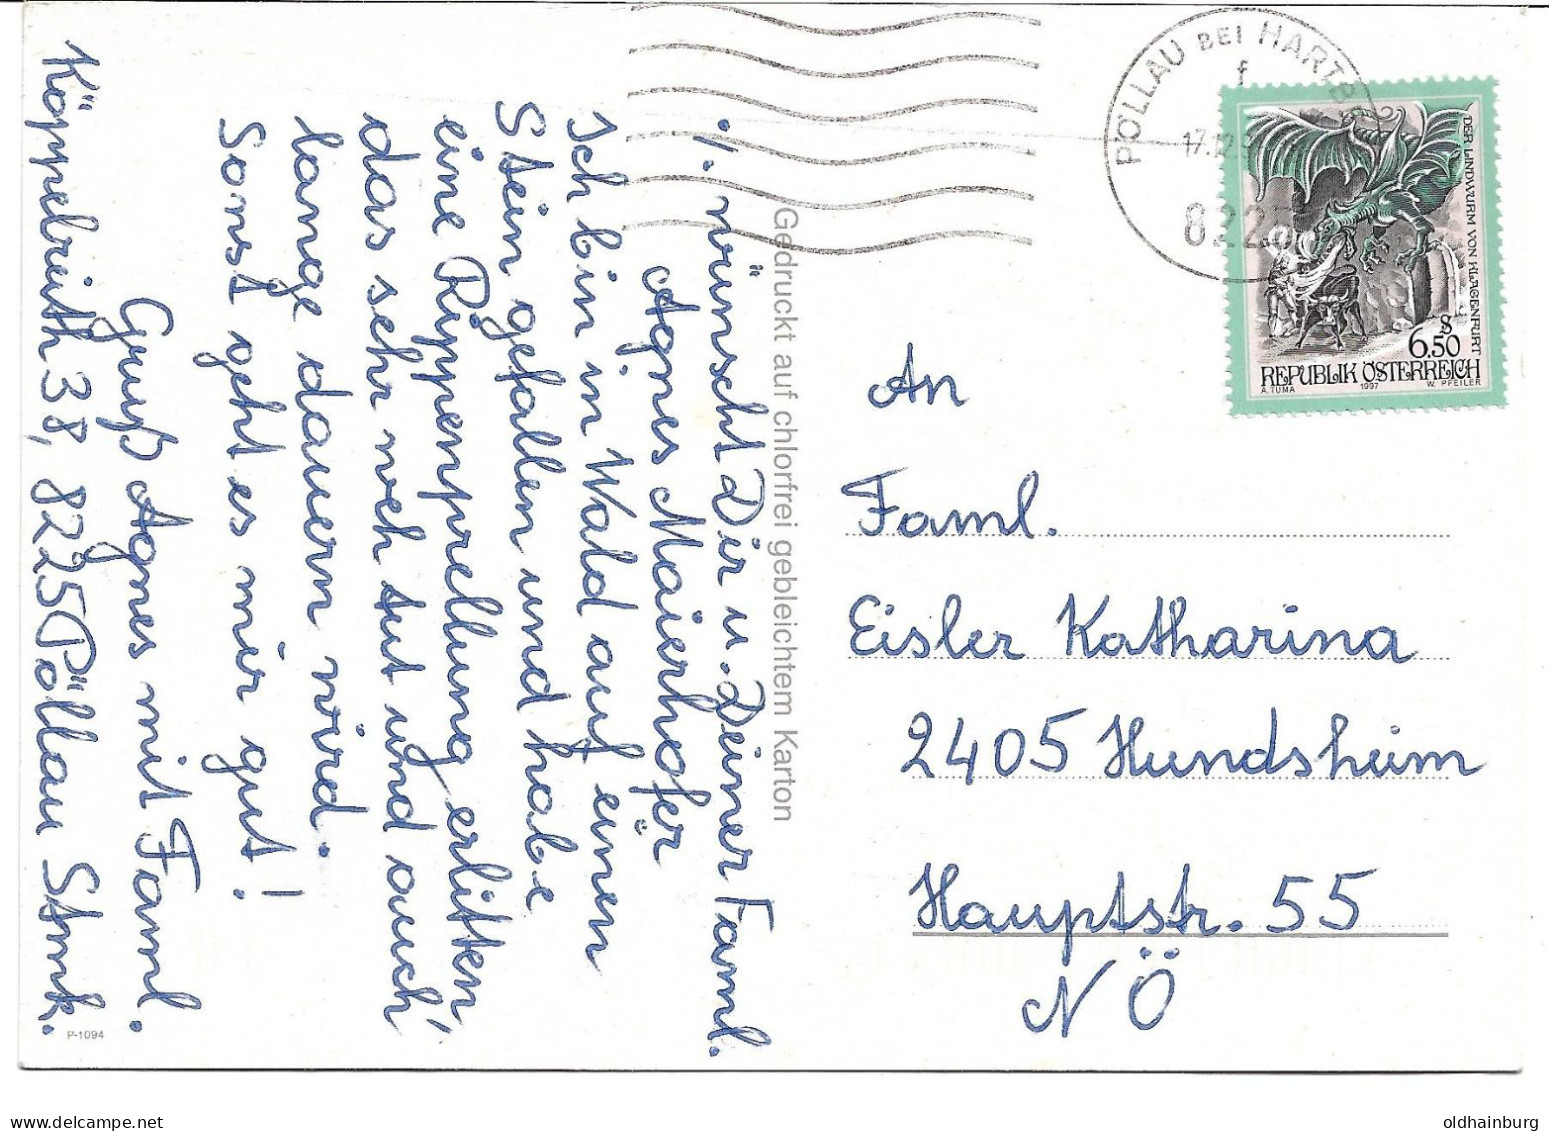 ·/. wünscht Dir u. Deiner Faml.
Agnes Maierhofer
Ich bin in Wald auf einen
Stein gefallen und habe
eine Rippenprellung erlitten
das sehr weh tut und auch
lange dauern wird.
Sonst geht es mir gut!
Gruß Agnes mit Faml.
Köppelreith 38, 8225 Pöllau Stmk.
P-1094
Gedruckt auf chlorfrei gebleichtem Karton
PÖLLAU BEI HARTBE
f
17.12.9
822
DER LINDWURM VON KLAGENFURT
S
6.50
REPUBLIK ÖSTERREICH
A. TUMA 1997 W. PFEILER
An
Faml.
Eisler Katharina
2405 Hundsheim
Hauptstr. 55
NÖ
oldhainburg